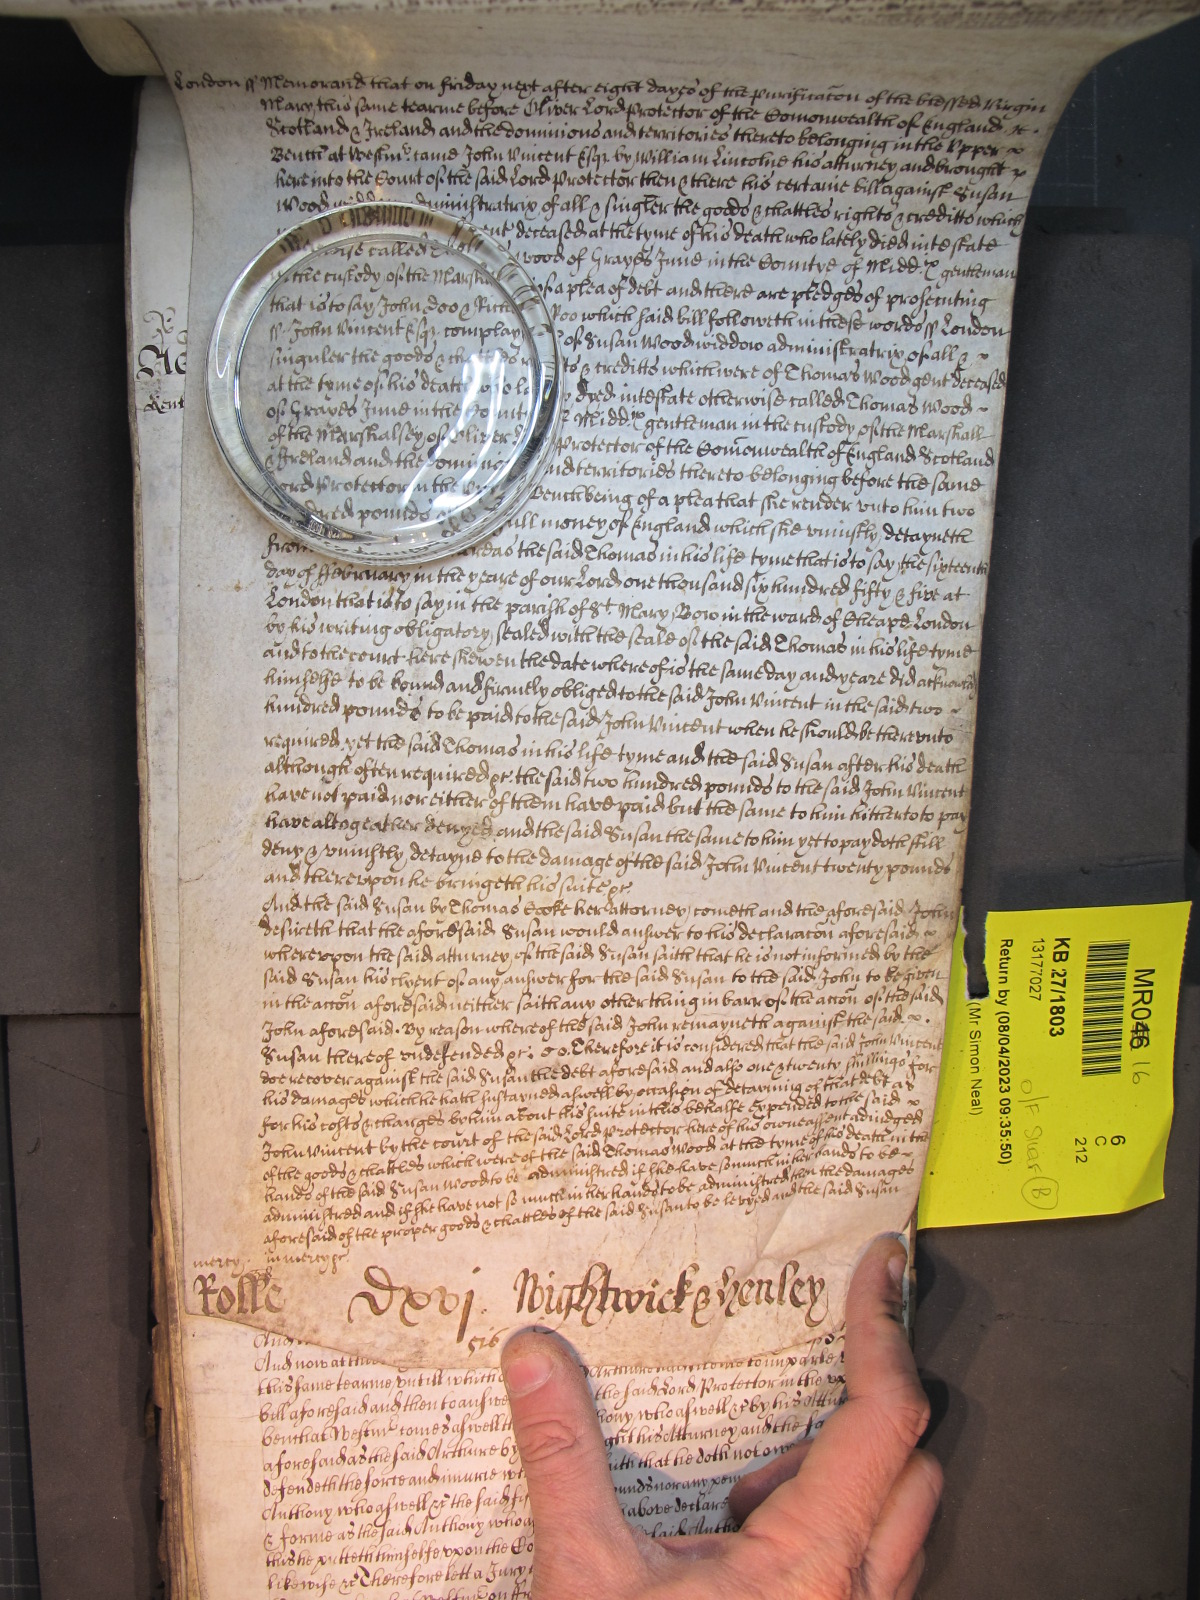 London ss Memorand that on Friday next after eight dayes of the purificacon of the blessed Virgin
Mary this same tearme before Oliver Lord Protector of the Comonwealth of England &c.
Scotland & Ireland and the dominions and territories thereto belonging in the Upper
Bench at Westmr came John Vincent Esqr by William Lincolne his atturney and brought
here into the Court of the said Lord Protector then & there his certaine bill against Susan
Wood administratrix of all & singler the goods & chattles rights & creditts which
deceased at the tyme of his death who lately died intestate
called Wood of Grayes Inne in the Countye of Middx gentleman
the custody of the Marshall of a plea of debt and there are pledges of prosecuting
that is to say John doo & Rich Roo which said bill followeth in these words ss London
ss John Vincent Esqr complay of Susan Wood widdow administratrix of all &
singuler the goods & chattles & creditts which were of Thomas Wood gent deceased
at the tyme of his death who la dyed intestate otherwise called Thomas Wood
of Grayes Inne in the Count Middx gentleman in the custody of the Marshall
of the Marshalsey of Oliver Protector of the Comonwealth of England Scotland
& Ireland and the dominio and territories thereto belonging before the same
Lord Protector in the Bench being of a plea that she render unto him two
hundred pounds of full money of England which she uniustly detayneth
from whereas the said Thomas in his life tyme that is to say the sixteenth
day of ffebruary in the yeare of our Lord one thousand six hundred fifty & five at
London that is to say in the parish of St Mary Bow in the ward of Cheape London
by his writing obligatory sealed with the seale of the said Thomas in his life tyme
and to the court here shewen the date whereof is the same day and yeare did acknowledg
himselfe to be bound and firmely obliged to the said John Vincent in the said two
hundred pounds to be paid to the said John Vincent when he should be thereunto
required yet the said Thomas in his life tyme and the said Susan after his death
although often required &c. the said two hundred pounds to the said John Vincent
have not paid nor either of them have paid but the same to him hitherto to pay
have altogeather denyed and the said Susan the same to him yet to pay doth still
deny & uniustly detayne to the damage of the said John Vincent twenty pounds
and thereupon he bringeth his suite &c.
And the said Susan by Thomas Cooke her attorney cometh and the aforesaid John
desireth that the aforesaid Susan would answer to his declaracon aforesaid
whereupon the said atturney of the said Susan saith that he is not informed by the
said Susan his clyent of any answer for the said Susan to the said John to be given
in the accon aforesaid neither saith any other thing in barr of the accon of the said
John aforesaid. By reason whereof the said John remayneth against the said
Susan thereof undefended &c. Therefore it is considered that the said John Vincent
doe recover against the said Susan the debt aforesaid and also one & twenty shillings for
his damages which he hath sustayned aswell by occasion of detayning of that debt as
for his costs & charges by him about his suite in this behalfe expended to the said
John Vincent by the court of the said Lord Protector here of his owne assent adiudged
of the goods & chattles which were of the said Thomas Wood at the tyme of his death in the
hands of the said Susan Wood to be administred if she have so much in her hands to be
administred and if she have not so much in her hands to be administred then the damages
aforesaid of the proper goods & chattles of the said Susan to be levyed and the said Susan
mercy. in mercy &c.
Rolle Dxvj. Nightwick & Henley
And now at
this same tearme untill which
bill aforesaid and then to answe the said Lord Protector in the
bench at Westmr comes aswell thony who aswell &c by his Attur
aforesaid as the said Arthure by his Atturney and the
defendeth the force and iniurie ith that he doth not owe
Anthony who aswell &c the said pounds nor any
& forme as the said Anthony who above declare
this he putteth himselfe upon the Co
likewise &c Therefore lett a Jury
Kent
MR046 16
KB 27/1803
13177027
Return by (08/04/2023 09:35:50)
(Mr Simon Neal)
6
C
212
O/F Shelf B